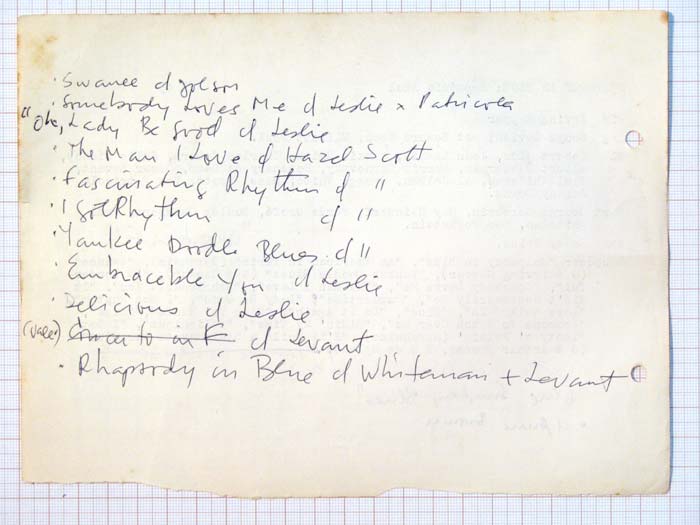 · Swanee d Jolson
· Somebody Loves Me d Leslie x Patricola
" Oh, Lady Be Good d Leslie
· The Man I Love d Hazel Scott
· Fascinating Rhythm d "
· I got Rhythm d "
· Yankee Doodle Blues d "
· Embraceable You d Leslie
· Delicious d Leslie
(vale) Concerto in F d Levant
· Rhapsody in Blue d Whiteman + Levant